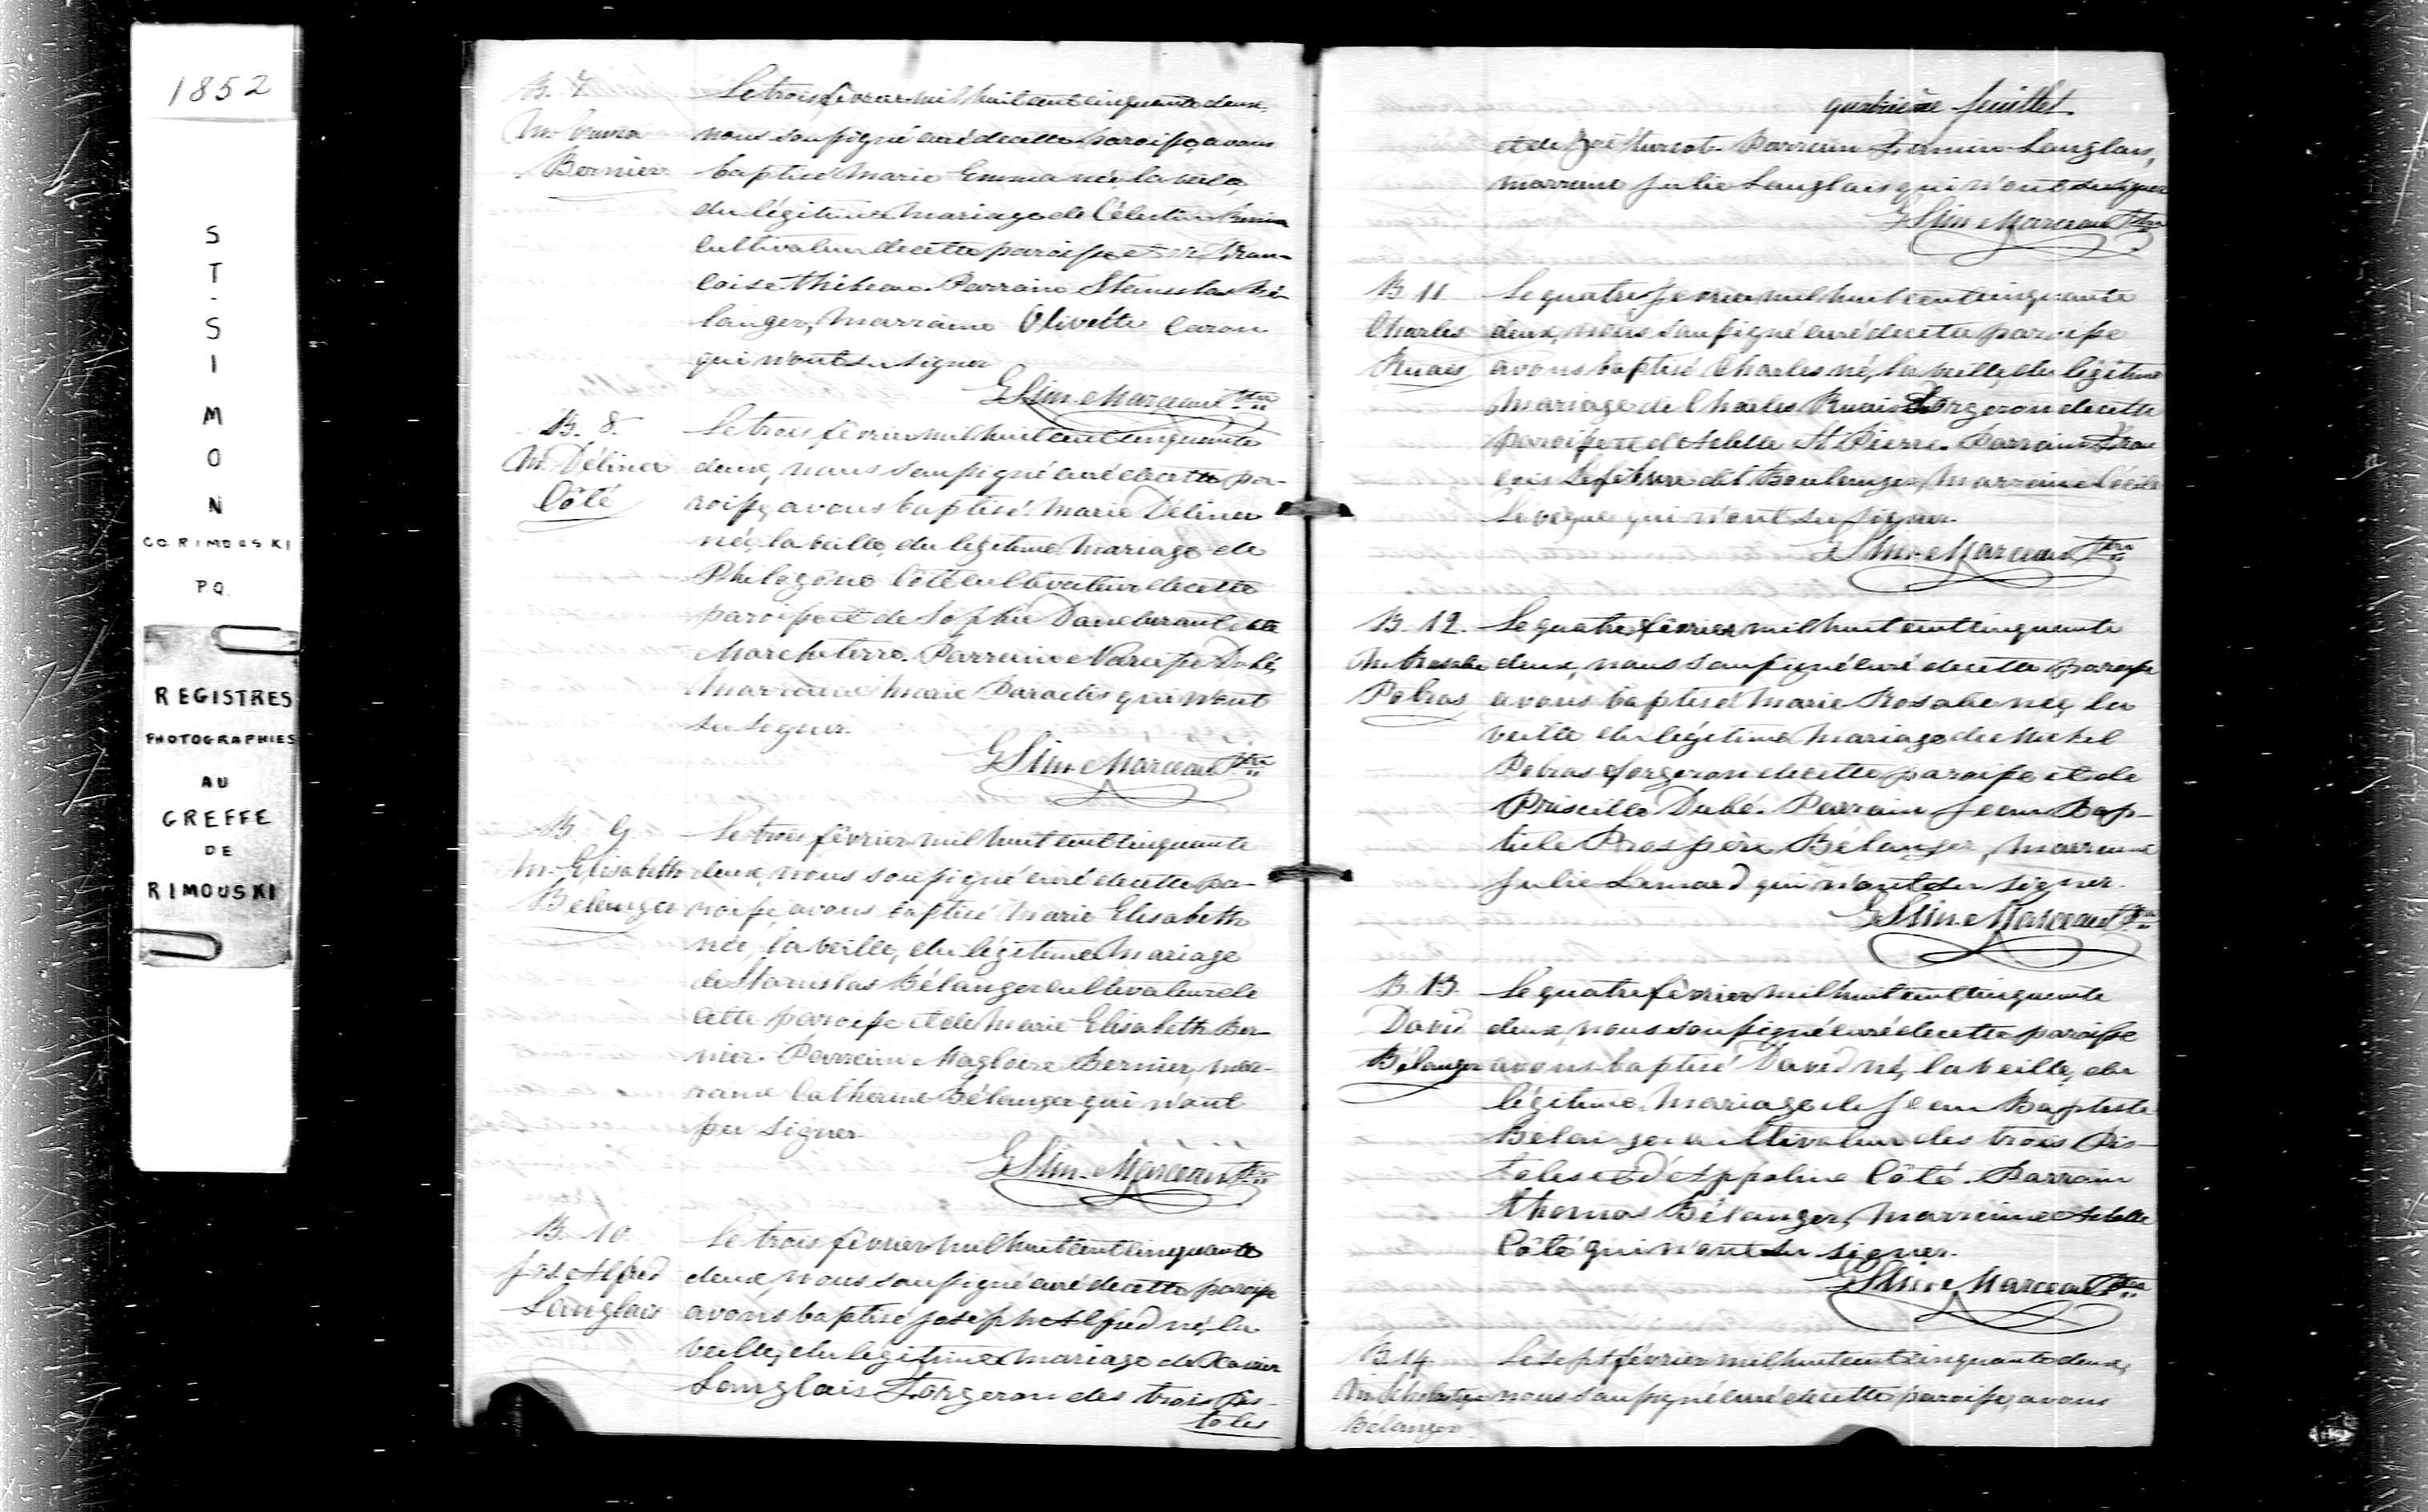 1852
ST-SIMON
CO. RIMOUSKI
P.Q.
REGISTRES
PHOTOGRAPHIES
AU
GREFFE
DE
RIMOUSKI
B. 7
M. Emma
Bernier
Le trois février mil huit cent cinquante deux,
nous soussigné curé de cette paroisse, avons
baptisé Marie Emma née, la veille,
du légitime mariage de Célestin Bernier
cultivateur de cette paroisse et de Fran-
coise Thibeau. Parrain Stanislas Bé-
langer, Marraine Olivette Caron
qui n'ont su signer
G Sim. Marceau Ptre
B. 8.
M. Délina
Côté
Le trois février mil huit cent cinquante
deux, nous soussigné curé de cette pa-
roisse, avons baptisé Marie Délina
née, la veille, du légitime mariage de
Philogône Côté cultivateur de cette
paroisse et de Sophie Dancurant dite
Marcheterre. Parrain Narcisse Dubé,
Marraine Marie Paradis qui n'ont
su signer.
G Sim. Marceau Ptre
B. 9.
M. Elisabeth
Bélanger
Le trois février mil huit cent cinquante
deux, nous soussigné curé de cette pa-
roisse, avons baptisé Marie Elisabeth
née, la veille, du légitime mariage
de Stanislas Bélanger cultivateur de
cette paroisse et de Marie Elisabeth Ber-
nier. Parrain Magloire Bernier, mar-
raine Catherine Bélanger qui n'ont
pu signer.
G Sim. Marceau Ptre
B. 10.
Jos. Alfred
Langlais
Le trois février mil huit cent cinquante
deux, nous soussigné curé de cette paroisse
avons baptisé Joseph Alfred né, la
veille, du légitime mariage de Xavier
Langlais Forgeron des trois Pis-
toles
quatrième feuillet
et de Zoé Turcot. Parrain Firmin Langlais,
marraine Julie Langlais qui n'ont su signer
G Sim. Marceau Ptre
B. 11.
Charles
Ruais
Le quatre février mil huit cent cinquante
deux, nous soussigné curé de cette paroisse
avons baptisé Charles né, la veille, du légitime
mariage de Charles Ruais Forgeron de cette
paroisse et d'Adèle St Pierre. Parrain Fran
cois Lefebvre dit Boulanger, Marraine Cécile
Levêque qui n'ont su signer.
G Sim. Marceau Ptre
B. 12.
M. Rosalie
Pelras
Le quatre février mil huit cent cinquante
deux, nous soussigné curé de cette paroisse
avons baptisé Marie Rosalie née, la
veille du légitime mariage de Michel
Pelras forgeron de cette paroisse et de
Priscille Dubé. Parrain Jean Bap-
tiste Prospère Bélanger, marraine
Julie Lemard qui n'ont su signer.
G Sim. Marceau Ptre
B. 13.
David
Bélanger
Le quatre février mil huit cent cinquante
deux, nous soussigné curé de cette paroisse
avons baptisé David né, la veille, du
légitime mariage de Jean Baptiste
Bélanger cultivateur des trois Pis-
toles et d'Appoline Côté. Parrain
Thomas Bélanger, Marraine Adèle
Côté qui n'ont su signer.
G Sim. Marceau Ptre
B. 14.
M. Scholastique
Bélanger
Le sept février mil huit cent cinquante deux,
nous soussigné curé de cette paroisse, avons